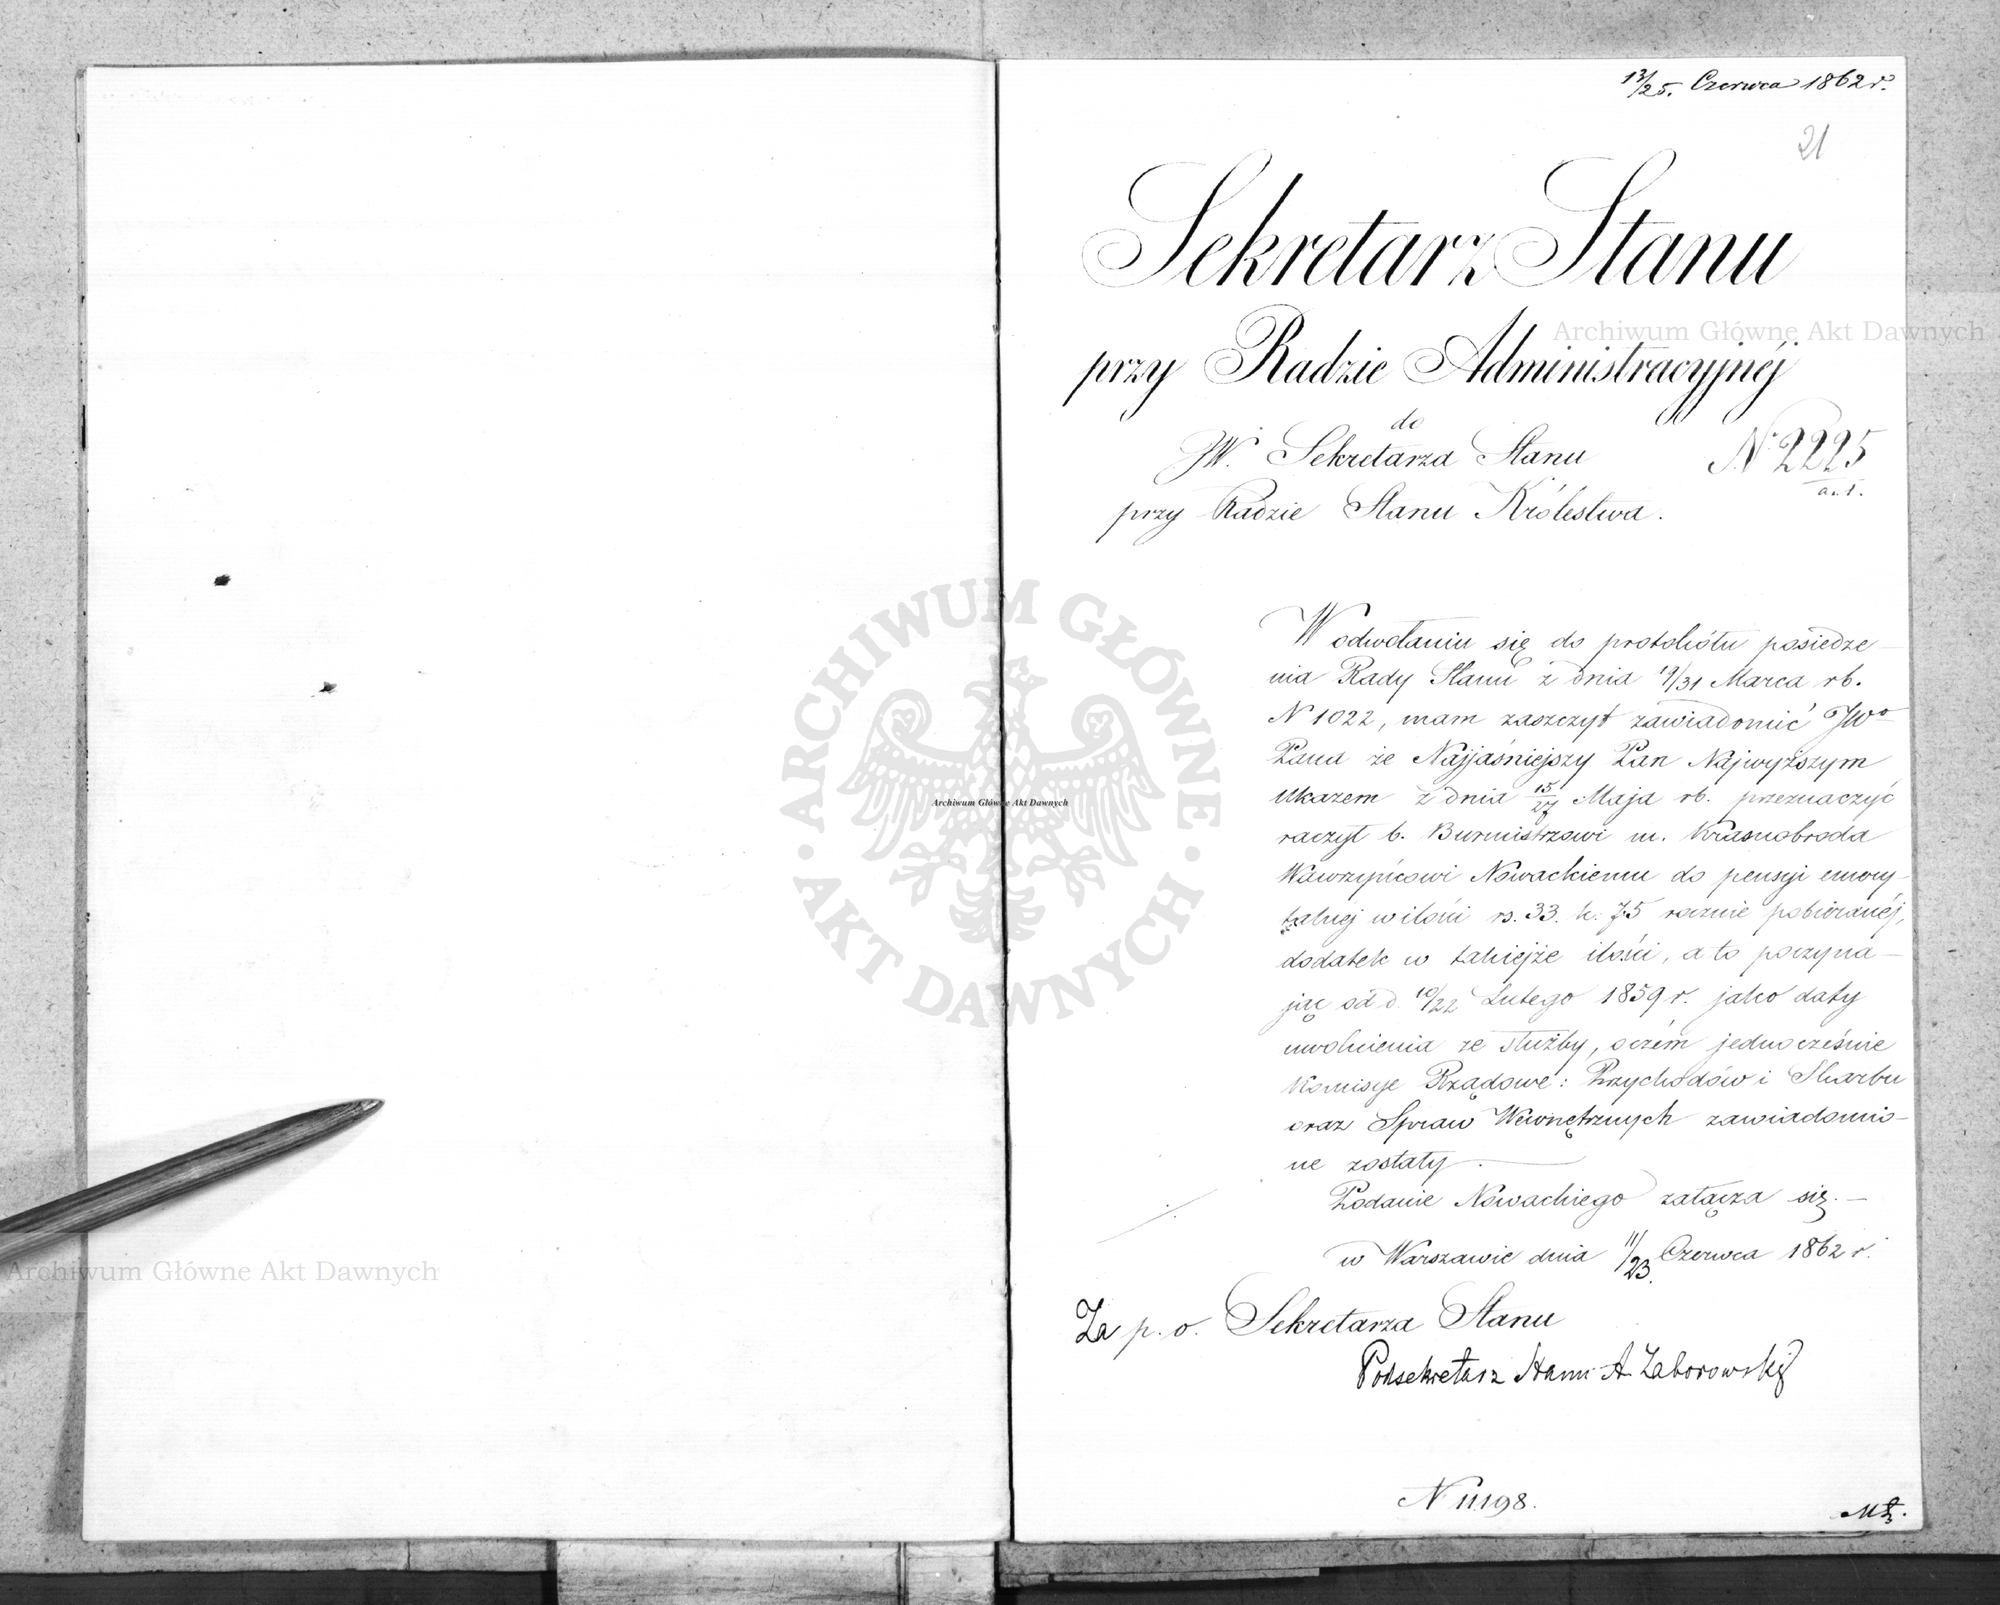 13/25. Czerwca 1862 r.
21
Sekretarz Stanu
przy Radzie Administracyjnéj
do
JW. Sekretarza Stanu
N. 2225
przy Radzie Stanu Królestwa.
W odwołaniu się do protokółu posiedze-
nia Rady Stanu z dnia 19/31 Marca rb.
N 1022, mam zaszczyt zawiadomić JWo
Pana że Najjaśniejszy Pan Najwyższym
Ukazem z dnia 15/27 Maja rb. przeznaczyć
raczył b. Burmistrzowi m. Krasnobroda
Wawrzyńcowi Nowackiemu do pensyi emery-
talnej w ilości rs. 33. k. 75 rocznie pobieranéj,
dodatek w takiejże ilości, a to poczyna-
jąc od d. 10/22 Lutego 1859 r. jako daty
uwolnienia ze służby, oczém jednocześnie
Komisye Rządowe: Przychodów i Skarbu
oraz Spraw Wewnętrznych zawiadomio-
ne zostały.
Podanie Nowackiego załącza się. -
w Warszawie dnia 11/23. Czerwca 1862 r.
Za p. o. Sekretarza Stanu
Podsekretarz Stanu A. Zaborowski
N 11198.
Archiwum Główne Akt Dawnych
Archiwum Główne Akt Dawnych
Archiwum Główne Akt Dawnych
ARCHIWUM GŁÓWNE
AKT DAWNYCH